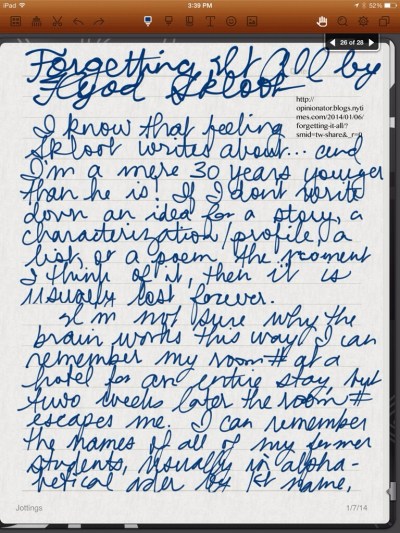 iPad
3:39 PM
52%
26 of 28
Forgetting It All by
Floyd Skloot
http://
opinionator.blogs.nyti
mes.com/2014/01/06/
forgetting-it-all/?
smid=tw-share&_r=0
I know that feeling
Skloot writes about... and
I'm a mere 30 years younger
than he is! If I don't write
down an idea for a story, a
characterization/profile, a
list, or a poem the moment
I think of it, then it is
usually lost forever.
I'm not sure why the
brain works this way. I can
remember my room # at a
hotel for an entire stay, but
two weeks later the room #
escapes me. I can remember
the names of all of my former
students, usually in alpha-
betical order by 1st name,
Jottings
1/7/14